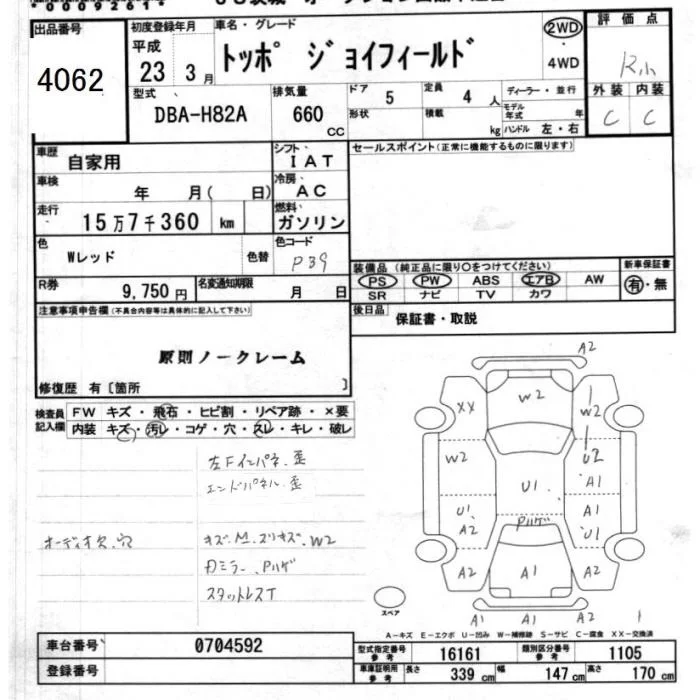 00092614
出品番号
4062
初度登録年月
平成
23 3月
車名・グレード
トッポ ジョイフィールド
2WD
・
4WD
評価点
R小
外装 内装
C C
型式
DBA-H82A
排気量
660
CC
ドア
5
定員
4 人
ディーラー・並行
形状
積載
kg
モデル年式 年
ハンドル 左・右
車歴
自家用
シフト
IAT
セールスポイント(正常に機能するものに限ります)
車検
年 月( 日)
冷房
AC
走行
15万7千360 km
燃料
ガソリン
色
Wレッド
色替
色コード
P39
装備品(純正品に限り○をつけてください)
新車保証書
PS PW ABS エアB AW
有・無
SR ナビ TV カワ
R券
9,750円
名変通知期限
月 日
後日品
保証書・取説
注意事項申告欄(不具合内容等は具体的に記入して下さい)
原則ノークレーム
修復歴 有〔箇所 〕
検査員記入欄
FW キズ・飛石・ヒビ割・リペア跡・×要
内装 キズ・汚レ・コゲ・穴・スレ・キレ・破レ
左Fインパネ、歪
エンドパネル、歪
オーディオ欠、穴
キズ、M、ズリキズ、W2
Dミラー、Pハゲ
スタットレスT
A2
XX W2 W2
W2 U2
U1 A1
U1 A1
A2 Pハゲ U1
A2 A1 A2
A1 A1 A2 1
スペア
A-キズ E-エクボ U-凹み W-補修跡 S-サビ C-腐食 XX-交換済
車台番号
0704592
型式指定番号
参考
16161
類別区分番号
参考
1105
登録番号
車庫証明用
参考
長さ 339 cm 幅 147 cm 高さ 170 cm